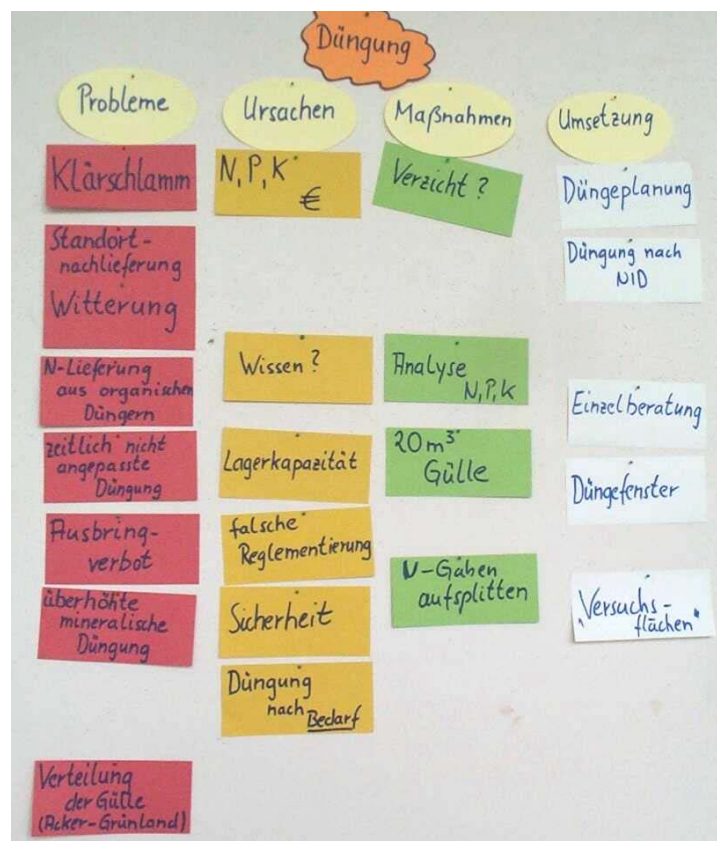 Düngung
Probleme
Klärschlamm
Standort-
nachlieferung
Witterung
N-Lieferung
aus organischen
Düngern
zeitlich nicht
angepasste
Düngung
Ausbring-
verbot
überhöhte
mineralische
Düngung
Verteilung
der Gülle
(Acker-Grünland)
Ursachen
N, P, K
€
Wissen?
Lagerkapazität
falsche
Reglementierung
Sicherheit
Düngung
nach Bedarf
Maßnahmen
Verzicht?
Analyse
N, P, K
20 m³
Gülle
N-Gaben
aufsplitten
Umsetzung
Düngeplanung
Düngung nach
NID
Einzelberatung
Düngefenster
"Versuchs-
flächen"